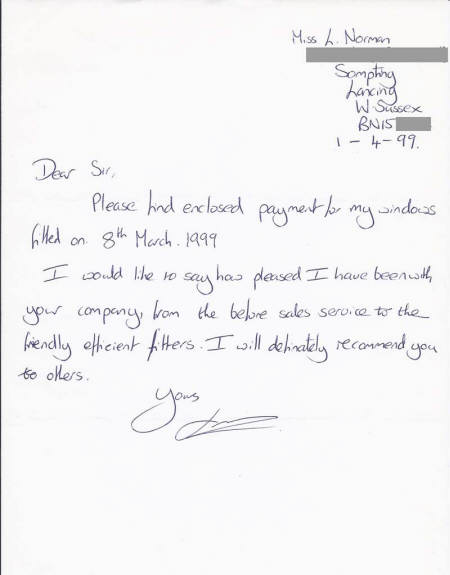 Miss L. Norman
Sompting
Lancing
W. Sussex
BN15
1 - 4 - 99.
Dear Sir,
Please find enclosed payment for my windows
fitted on 8th March. 1999
I would like to say how pleased I have been with
your company, from the before sales service to the
friendly efficient fitters. I will definately recommend you
to others.
Yours